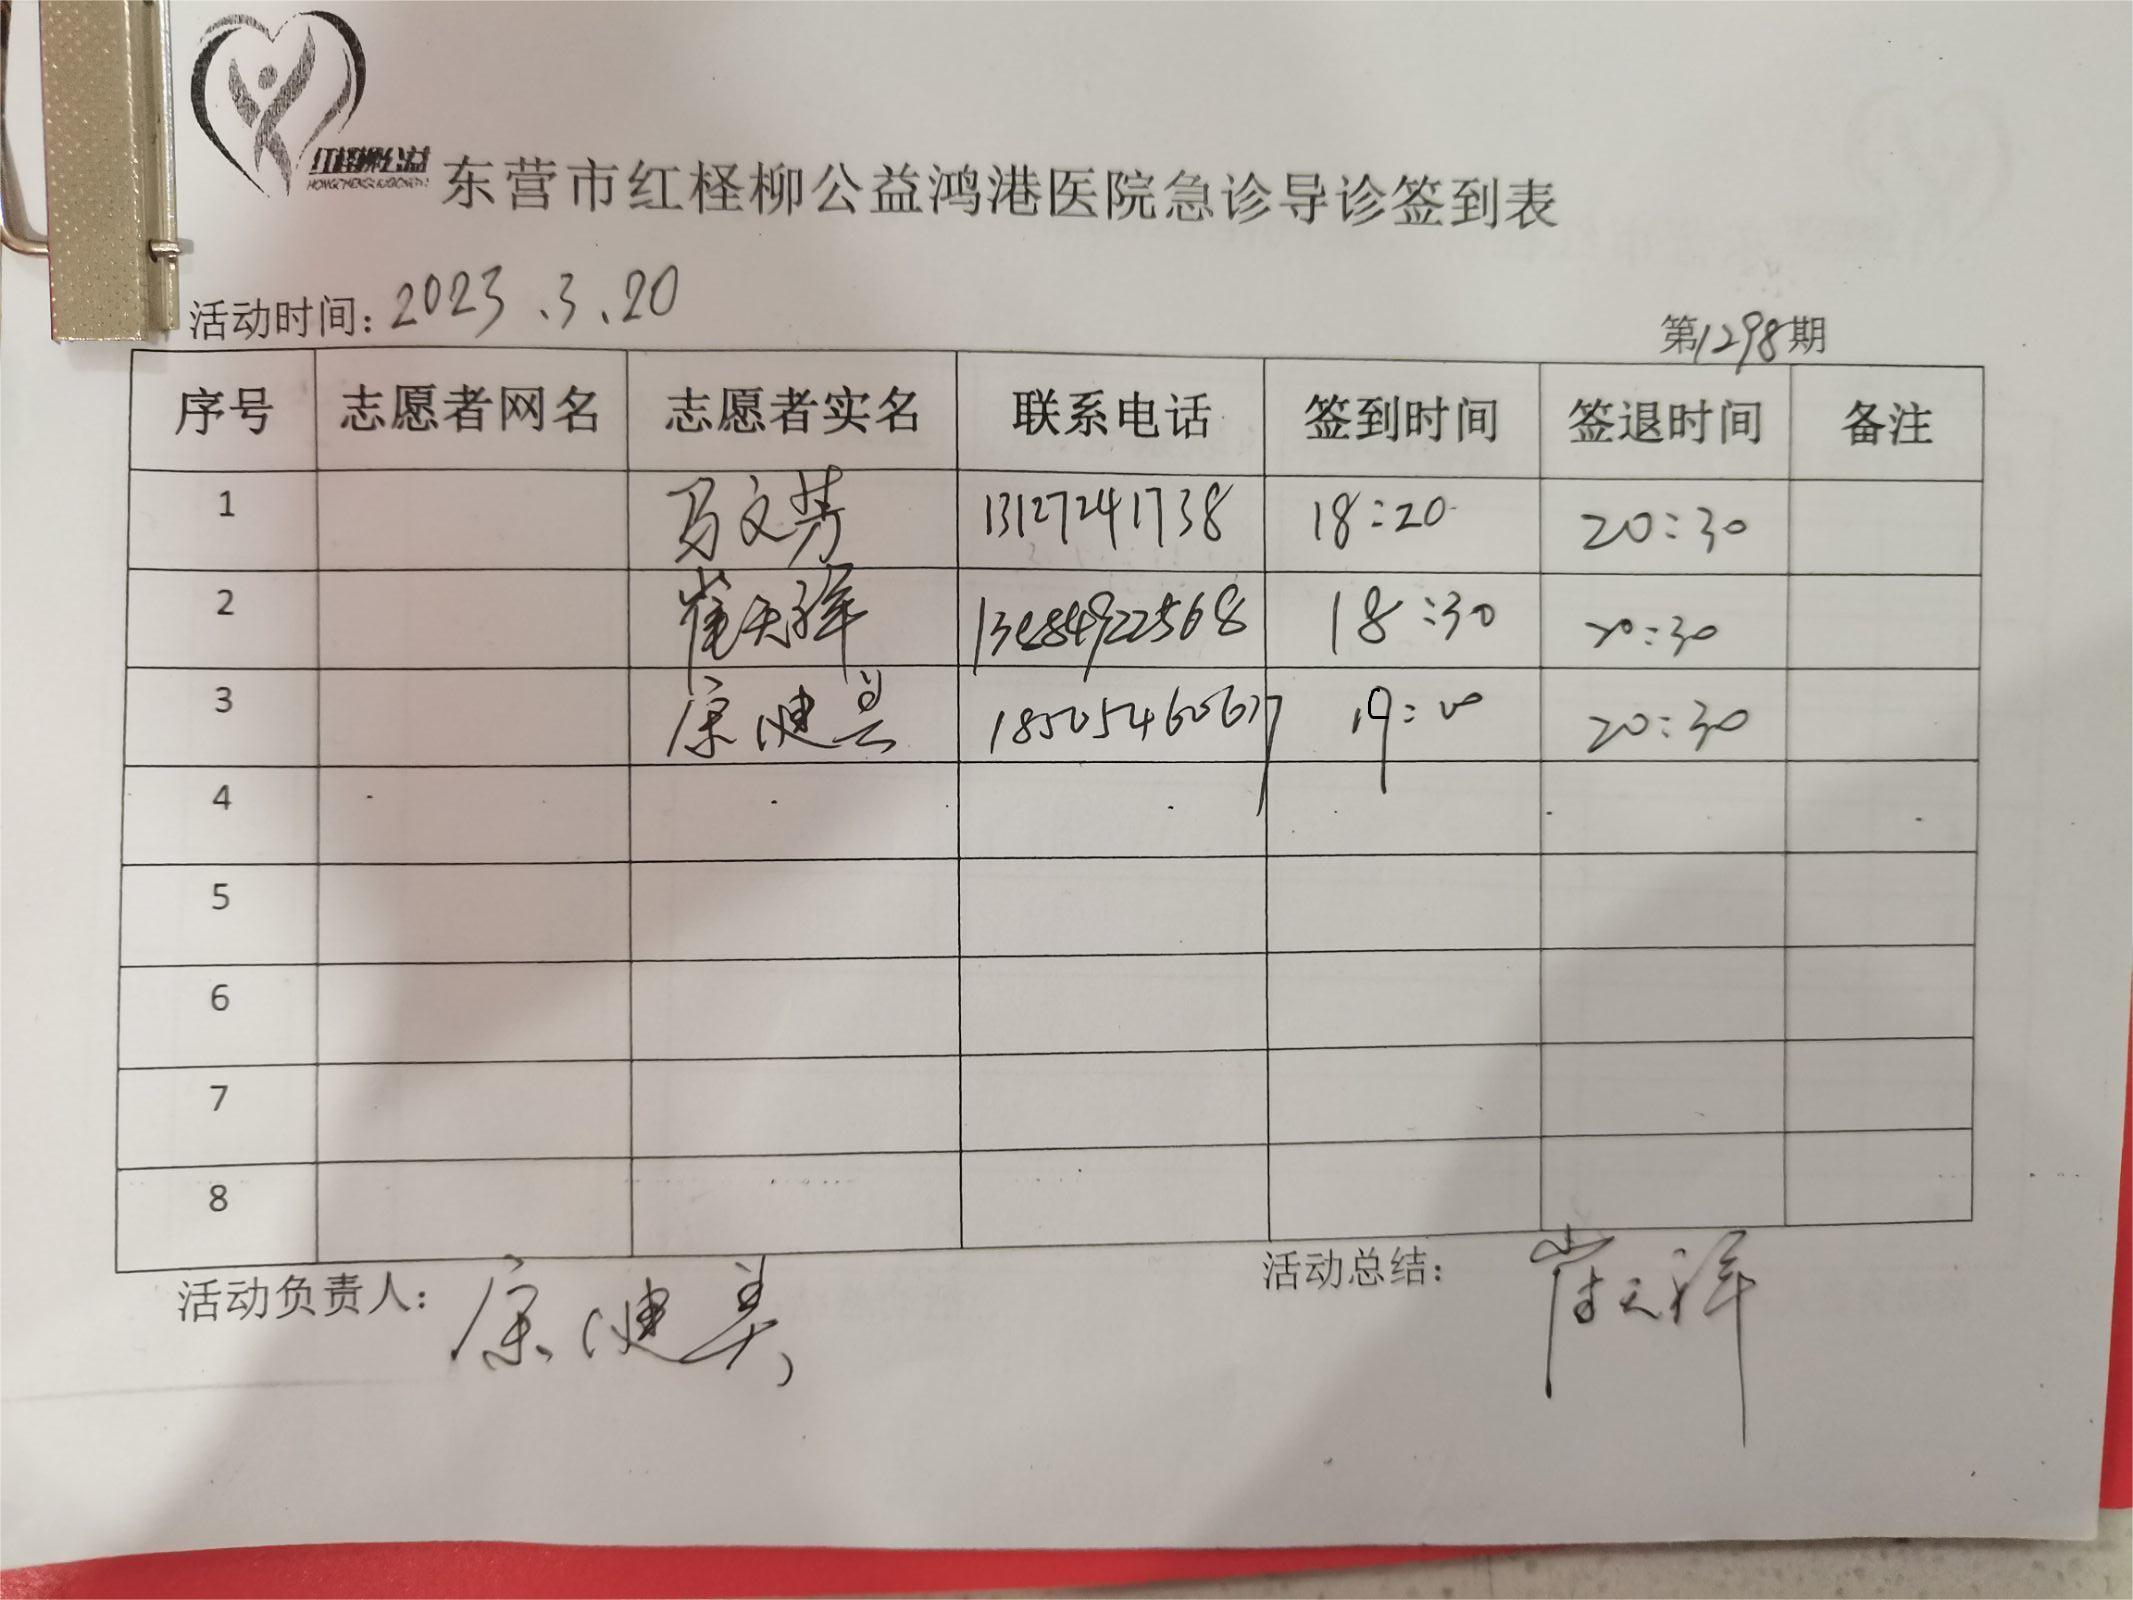 红柽柳公益
东营市红柽柳公益鸿港医院急诊导诊签到表
活动时间: 2023.3.20
第1298期
序号 志愿者网名 志愿者实名 联系电话 签到时间 签退时间 备注
1 马文芳 13127241738 18:20 20:30
2 崔天祥 18:30 20:30
3 康健美 19:00 20:30
4
5
6
7
8
活动负责人: 康健美
活动总结: 崔天祥